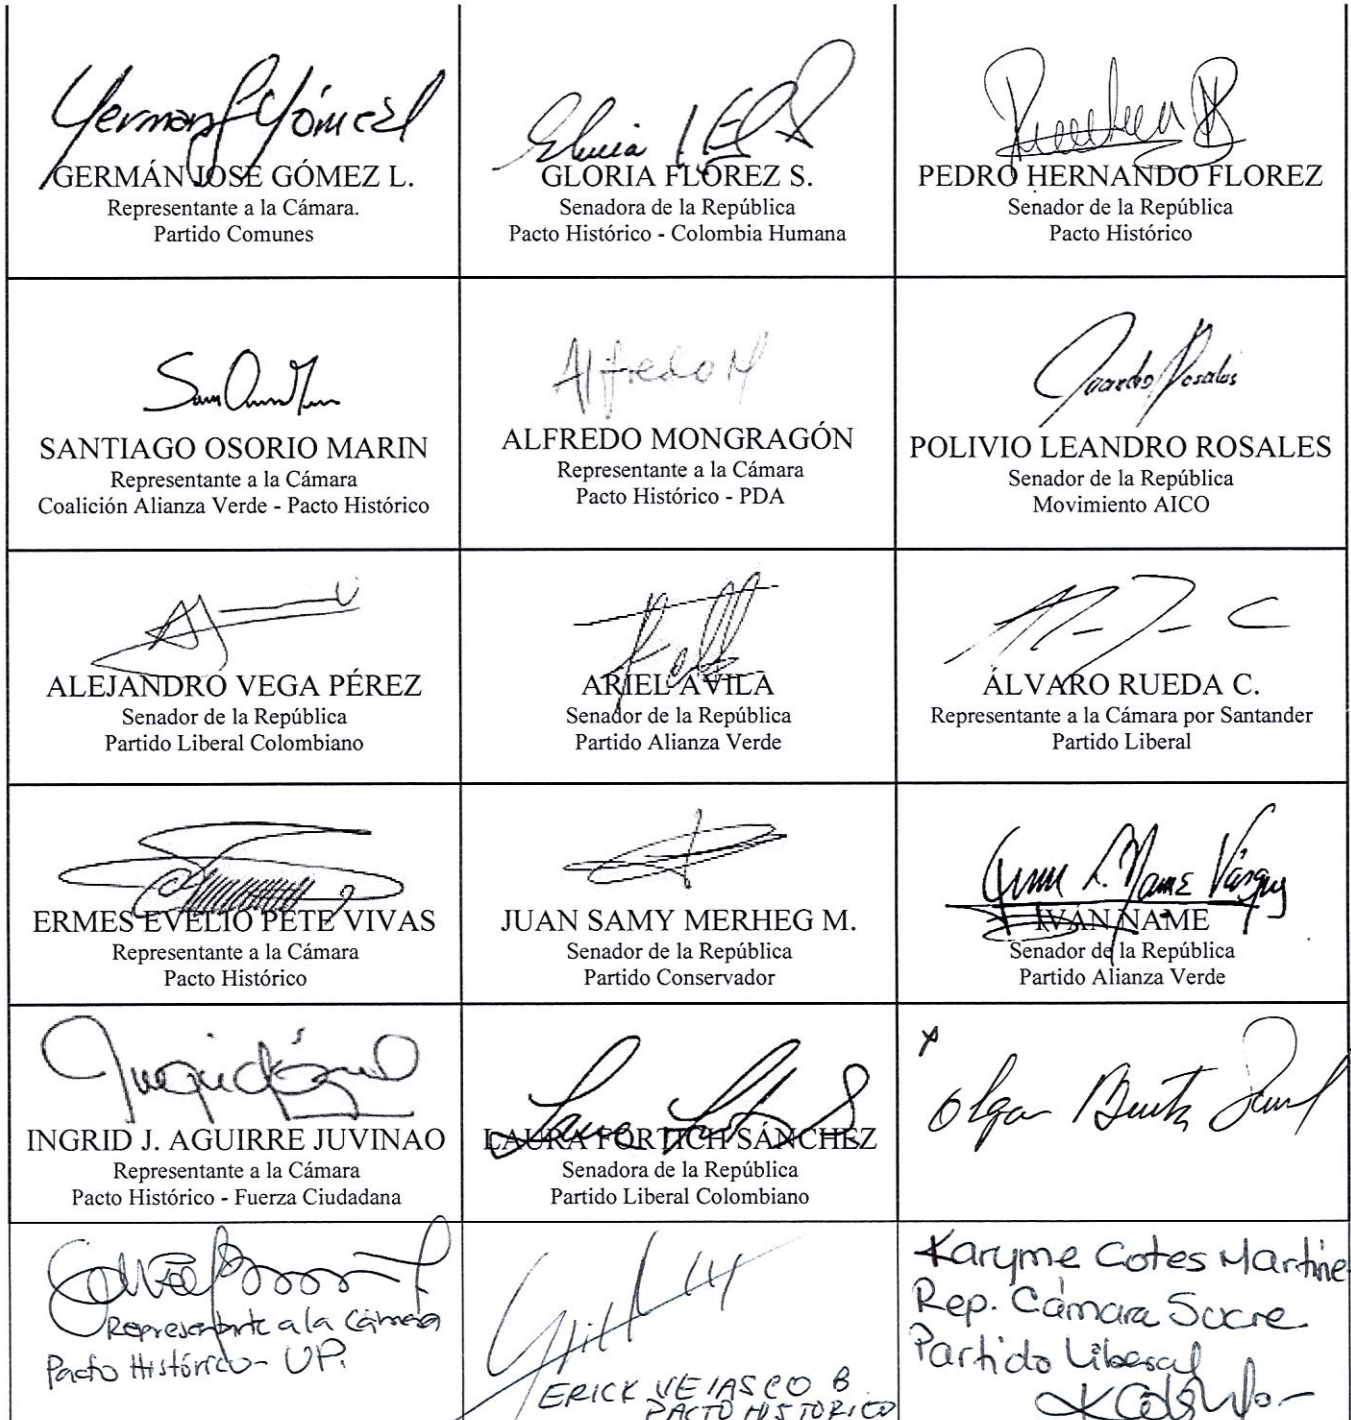 GERMÁN JOSÉ GÓMEZ L.
Representante a la Cámara.
Partido Comunes
GLORIA FLÓREZ S.
Senadora de la República
Pacto Histórico - Colombia Humana
PEDRO HERNANDO FLOREZ
Senador de la República
Pacto Histórico
SANTIAGO OSORIO MARIN
Representante a la Cámara
Coalición Alianza Verde - Pacto Histórico
Alfredo M
ALFREDO MONGRAGÓN
Representante a la Cámara
Pacto Histórico - PDA
POLIVIO LEANDRO ROSALES
Senador de la República
Movimiento AICO
ALEJANDRO VEGA PÉREZ
Senador de la República
Partido Liberal Colombiano
ARIEL ÁVILA
Senador de la República
Partido Alianza Verde
ÁLVARO RUEDA C.
Representante a la Cámara por Santander
Partido Liberal
ERMES EVELIO PETE VIVAS
Representante a la Cámara
Pacto Histórico
JUAN SAMY MERHEG M.
Senador de la República
Partido Conservador
IVÁN NAME
Senador de la República
Partido Alianza Verde
INGRID J. AGUIRRE JUVINAO
Representante a la Cámara
Pacto Histórico - Fuerza Ciudadana
LAURA FORTICH SÁNCHEZ
Senadora de la República
Partido Liberal Colombiano
Olga
Representante a la Cámara
Pacto Histórico - UP.
ERICK VELASCO B
PACTO HISTORICO
Karyme Cotes Martine
Rep. Cámara Sucre
Partido Liberal